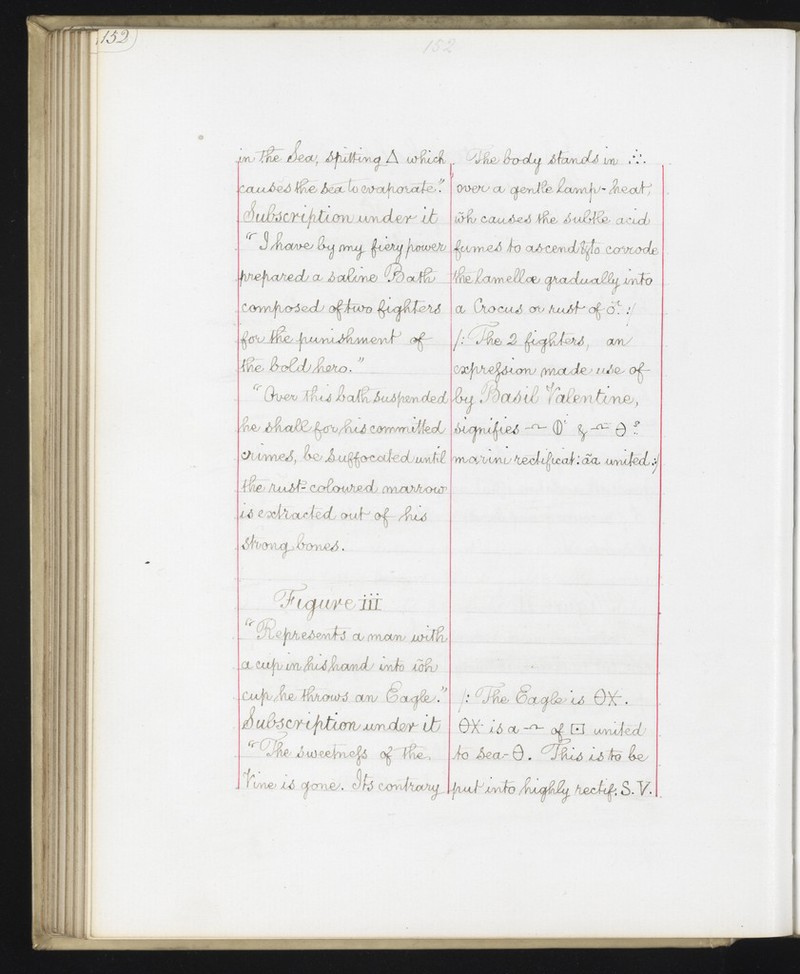 152
152
in the Sea, spitting △ which
causes the sea to evaporate."
Subscription under it
"I have by my fiery power
prepared a saline Bath
composed of two fighters
for the punishment of
the bold hero."
"Over this bath suspended
he shall for his committed
crimes, be suffocated until
the rust-coloured marrow
is extracted out of his
strong bones.
Figure iii
"Represents a man with
a cup in his hand into wh
cup he throws an Eagle."
Subscription under it
"The sweetness of the
Vine is gone. Its contrary
The body stands in ∴
over a gentle lamp-heat,
wh causes the subtle acid
fumes to ascend & to corrode
the lamellæ gradually into
a Crocus or rust of ♂. :/
/: The 2 fighters, an
expression made use of
by Basil Valentine,
signifies & 
marini rectificat: āa united :/
/: The Eagle is ӨӾ.
ӨӾ is a of ⊡ united
to sea-Ө. This is to be
put into highly rectif: S.V.